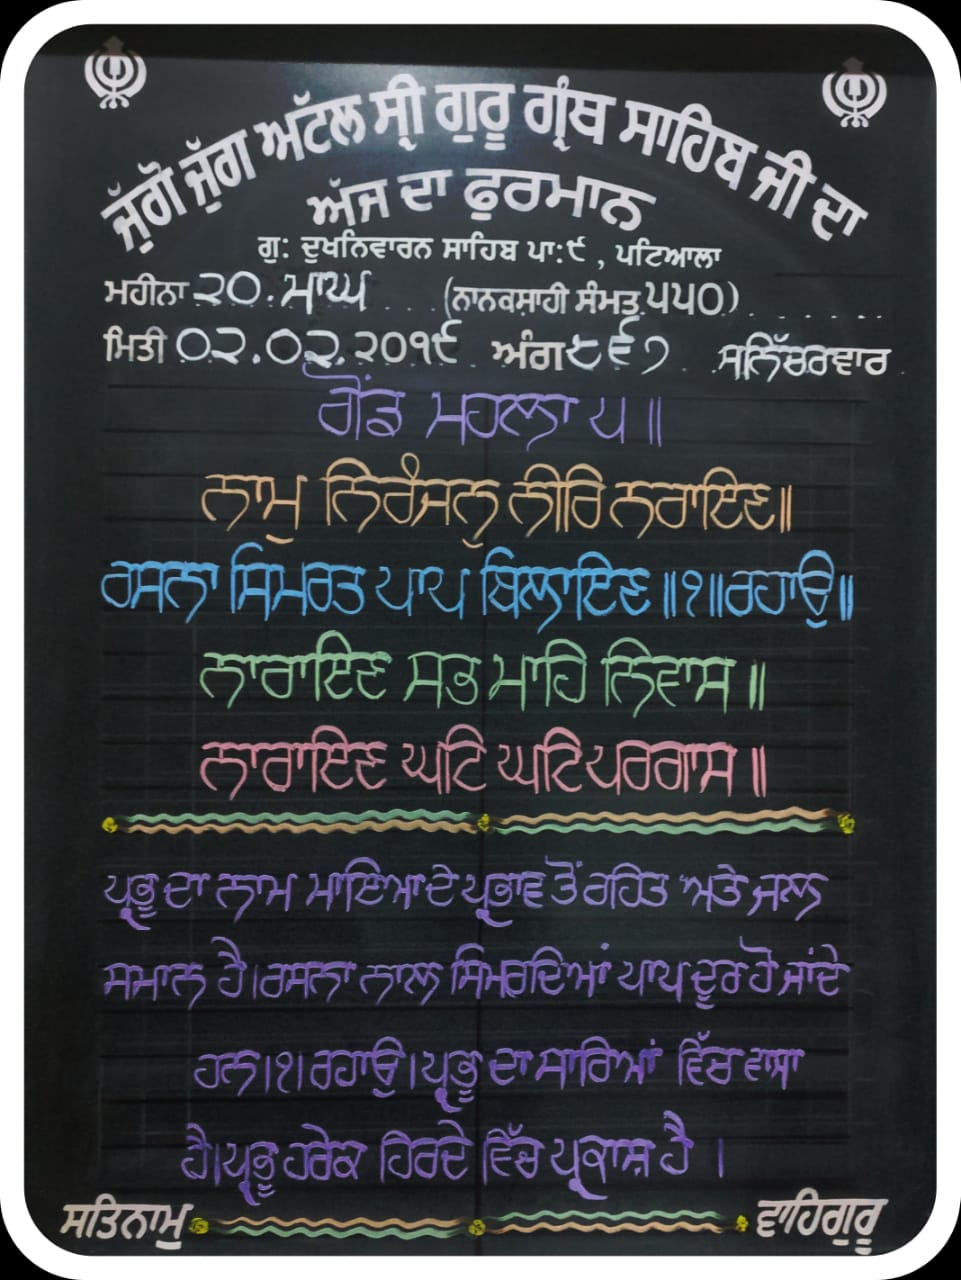 ਜੁੱਗੋ ਜੁੱਗ ਅਟੱਲ ਸ੍ਰੀ ਗੁਰੂ ਗ੍ਰੰਥ ਸਾਹਿਬ ਜੀ ਦਾ
ਅੱਜ ਦਾ ਫੁਰਮਾਨ
ਗੁ: ਦੁਖਨਿਵਾਰਨ ਸਾਹਿਬ ਪਾ:੯, ਪਟਿਆਲਾ
ਮਹੀਨਾ ੨੦.ਮਾਘ (ਨਾਨਕਸ਼ਾਹੀ ਸੰਮਤ ੫੫੦)
ਮਿਤੀ ੦੨.੦੨.੨੦੧੯ ਅੰਗ ੮੬੭ ਸਨਿੱਚਰਵਾਰ
ਗੋਂਡ ਮਹਲਾ ੫ ॥
ਨਾਮੁ ਨਿਰੰਜਨੁ ਨੀਰਿ ਨਰਾਇਣ ॥
ਰਸਨਾ ਸਿਮਰਤ ਪਾਪ ਬਿਲਾਇਣ ॥੧॥ਰਹਾਉ॥
ਨਾਰਾਇਣ ਸਭ ਮਾਹਿ ਨਿਵਾਸ ॥
ਨਾਰਾਇਣ ਘਟਿ ਘਟਿ ਪਰਗਾਸ ॥
ਪ੍ਰਭੂ ਦਾ ਨਾਮ ਮਾਇਆ ਦੇ ਪ੍ਰਭਾਵ ਤੋਂ ਰਹਿਤ ਅਤੇ ਜਲ
ਸਮਾਨ ਹੈ।ਰਸਨਾ ਨਾਲ ਸਿਮਰਦਿਆਂ ਪਾਪ ਦੂਰ ਹੋ ਜਾਂਦੇ
ਹਨ।੧।ਰਹਾਉ।ਪ੍ਰਭੂ ਦਾ ਸਾਰਿਆਂ ਵਿੱਚ ਵਾਸਾ
ਹੈ।ਪ੍ਰਭੂ ਹਰੇਕ ਹਿਰਦੇ ਵਿੱਚ ਪ੍ਰਕਾਸ਼ ਹੈ ।
ਸਤਿਨਾਮੁ ਵਾਹਿਗੁਰੂ